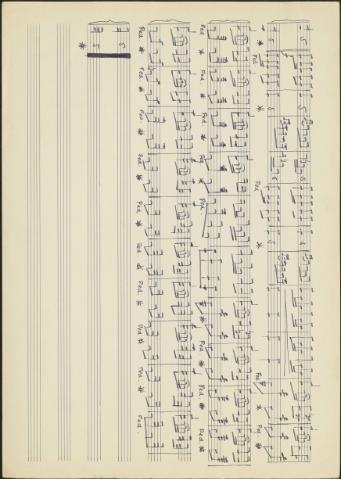 * Ped * Ped * Ped * Ped *
Ped * Ped * Ped * Ped * Ped * Ped * Ped * Ped *
Ped * Ped * Ped * Ped * Ped * Ped * Ped * Ped * Ped * Ped
*